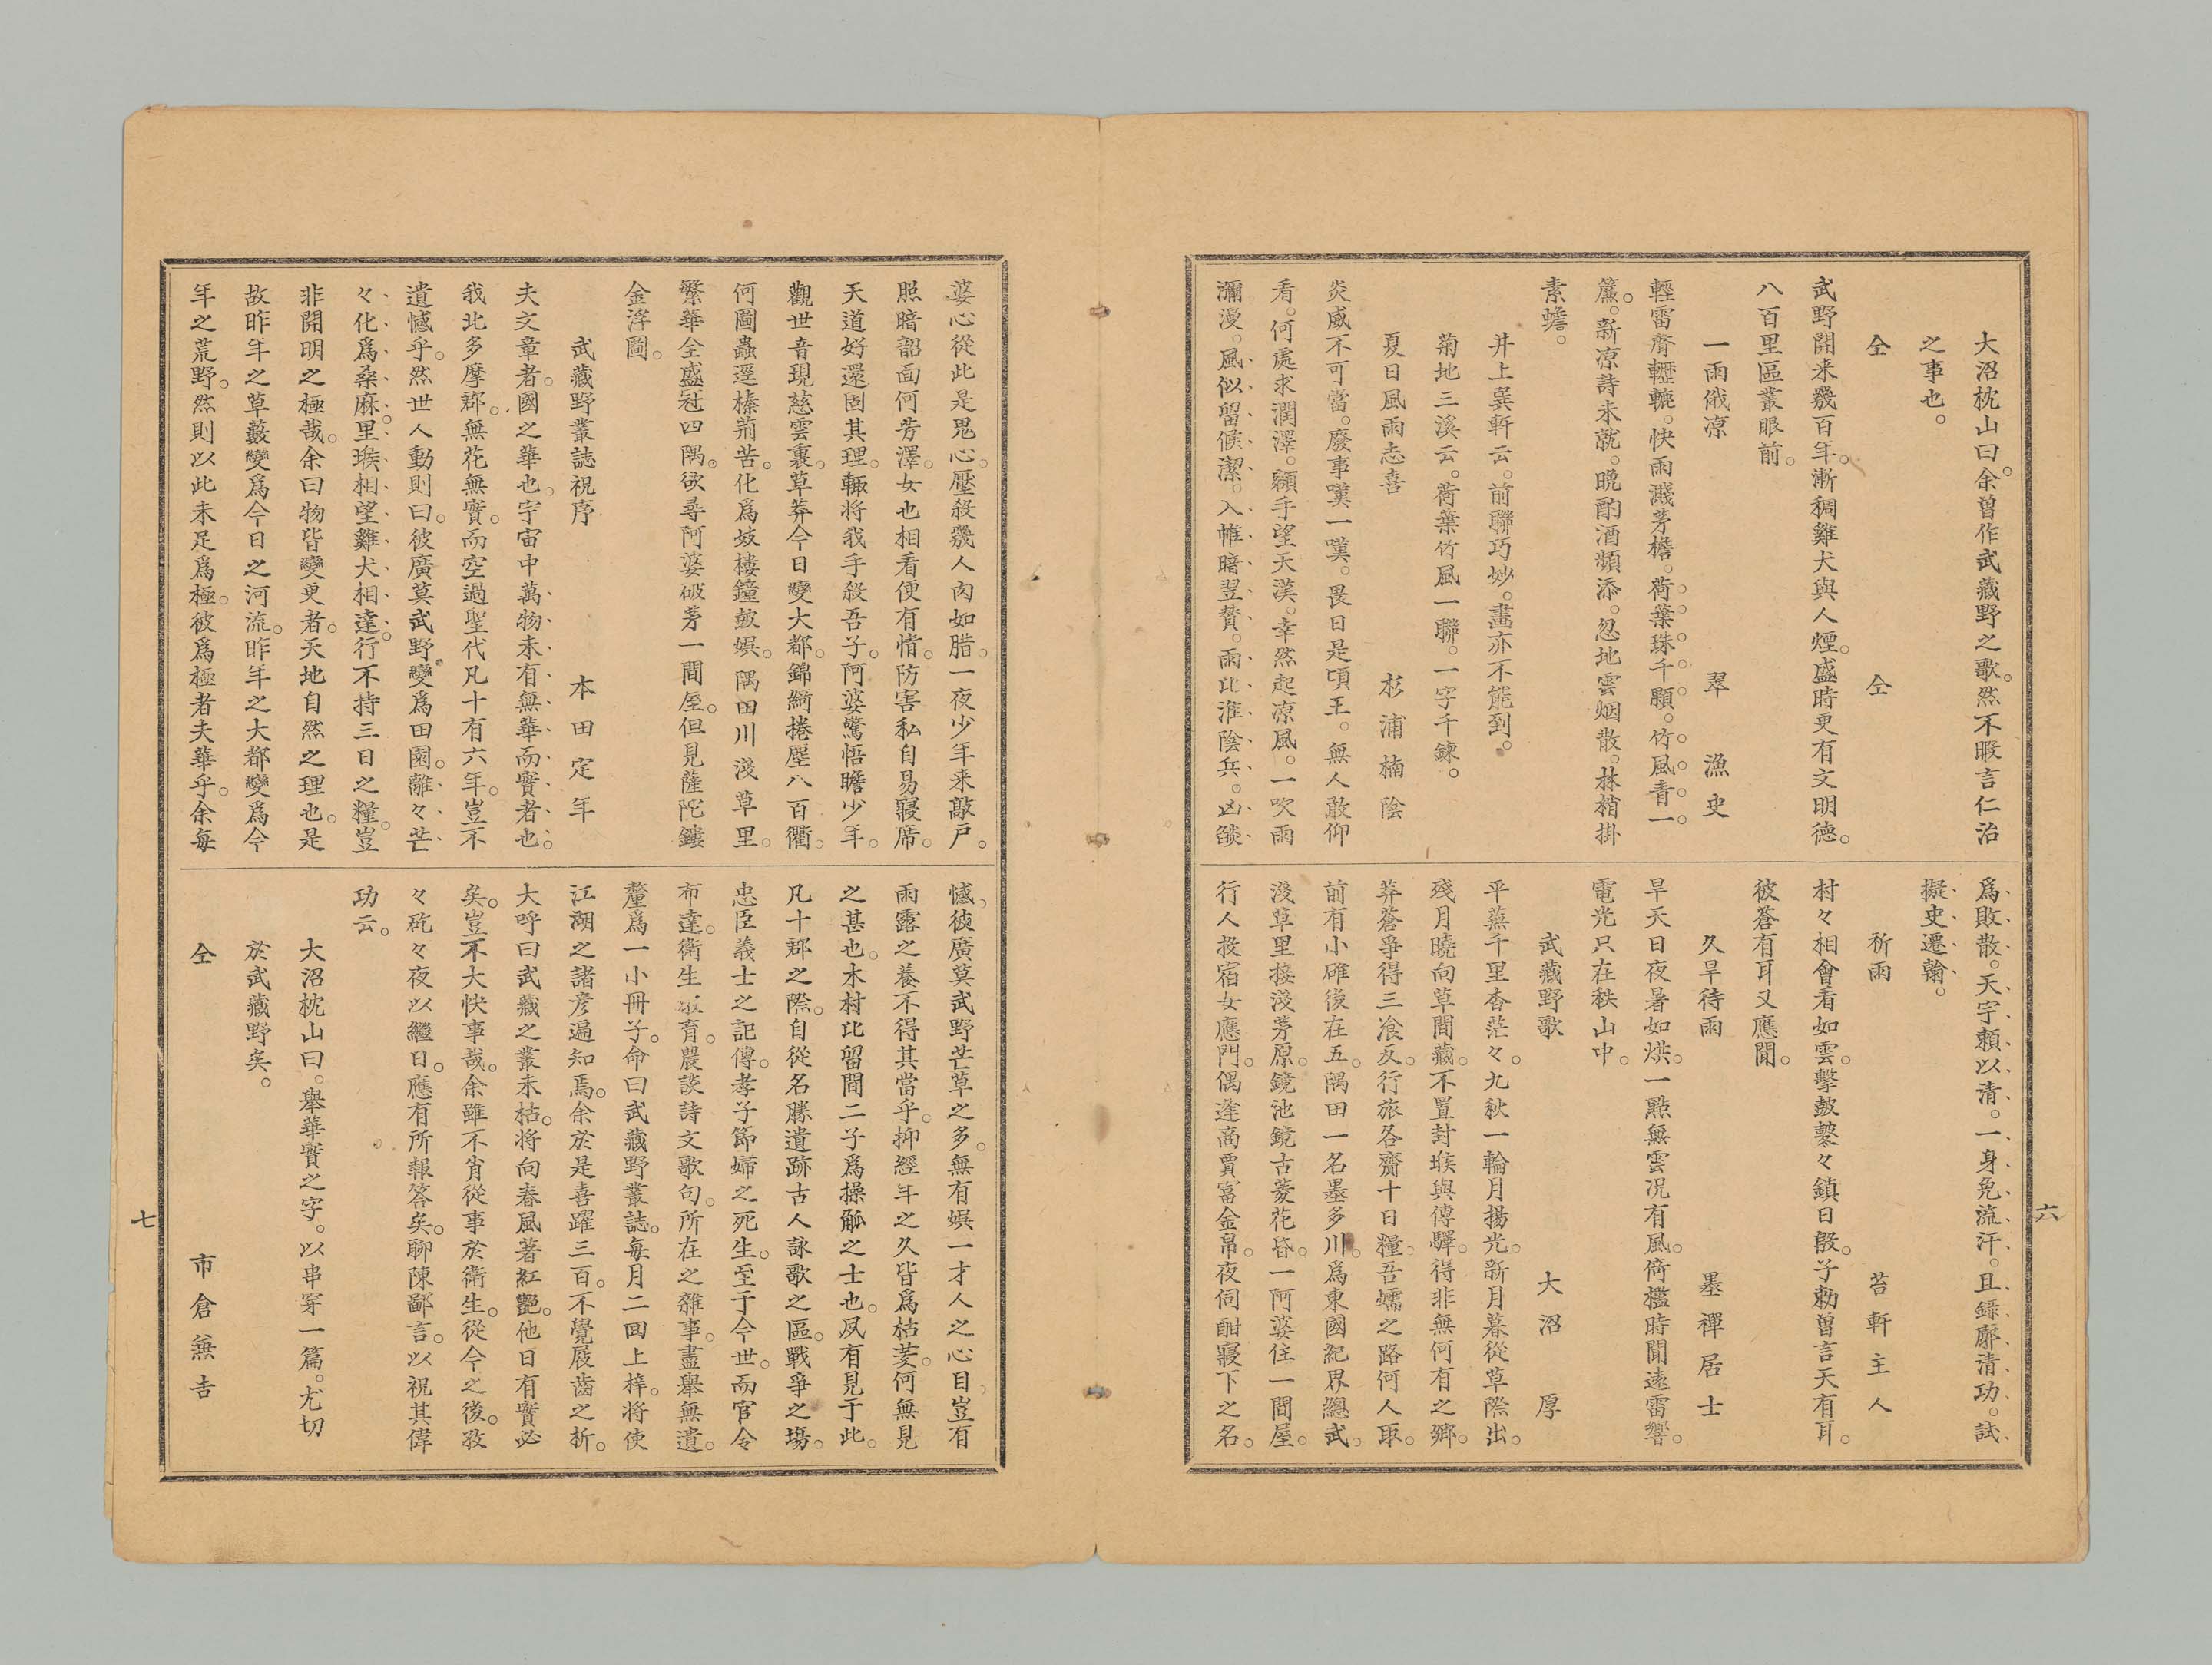 大沼枕山曰。余曽作武藏野之歌。然不暇言仁治
之事也。
仝　仝
武野開来幾百年。漸稠雞犬與人煙。盛時更有文明德。
八百里區叢眼前。
一雨俄凉　翠漁史
輕雷齊轣轆。快雨濺茅檐。荷葉珠千顆。竹風青一
簾。新凉詩未就。晩酌酒頻添。忽地雲烟散。林梢掛
素蟾。
井上巽軒云。前聯巧妙。畫亦不能到。
菊地三溪云。荷葉竹風一聯。一字千鍊。
夏日風雨志喜　杉浦楠陰
炎威不可當。廢事嘆一嘆。畏日是頃王。無人敢仰
看。何處求潤澤。額手望天漢。幸然起凉風。一吹雨
瀰漫。風似留候潔。入帷暗翌賛。雨比淮陰兵。凶燄
爲敗散。天宇頼以清。一身免流汗。且録廓清功。試
擬史遷翰。
祈雨　苔軒主人
村々相會看如雲。擊鼓鼕々鎮日殷。子勑曽言天有耳。
彼蒼有耳又應聞。
久旱待雨　墨禪居士
旱天日夜暑如烘。一點無雲况有風。倚檻時聞遠雷響。
電光只在秩山中。
武藏野歌　大沼厚
平蕪千里杳茫々。九秋一輪月揚光。新月暮從草際出。
殘月曉向草間藏。不置封堠與傳驛。得非無何有之鄉。
莽蒼爭得三飡反。行旅各齎十日糧。吾嬬之路何人取。
前有小碓後在五。隅田一名墨多川。爲東國紀界總武。
淺草里接淺茅原。鏡池鏡古菱花昏。一阿婆住一間屋。
行人投宿女應門。偶逢商賈富金帛。夜伺酣寢下之名。
六
婆心從此是鬼心。壓殺幾人肉如腊。一夜少年来敲戸。
照暗韶面何芳澤。女也相看便有情。防害私自易寢席。
天道好還固其理。輙将我手殺吾子。阿婆驚悟瞻少年。
觀世音現慈雲裏。草莽今日變大都。錦綺捲塵八百衢。
何圖蟲逕榛荊苦。化爲妓樓鐘鼓娯。隅田川淺草里。
繁華全盛冠四隅。欲尋阿婆破茅一間屋。但見薩陀鏤
金浮圖。
武藏野叢誌祝序　本田定年
夫文章者。國之華也。宇宙中萬物未有無華而實者也。
我北多摩郡。無花無實。而空過聖代凡十有六年。豈不
遺憾乎。然世人動則曰。彼廣莫武野變爲田園。離々芒
々化爲桑麻。里堠相望雞犬相達。行不持三日之糧。豈
非開明之極哉。余曰物皆變更者。天地自然之理也。是
故昨年之草藪變爲今日之河流。昨年之大都變爲今
年之荒野。然則以此未足爲極。彼爲極者夫華乎。余每
憾。彼廣莫武野芒草之多。無有娯一才人之心目。豈有
雨露之養不得其當乎。抑經年之久皆爲枯菱。何無見
之甚也。木村比留間二子爲操觚之士也。夙有見于此。
凡十郡之際。自從名勝遺跡古人詠歌之區。戰爭之塲。
忠臣義士之記傳。孝子節婦之死生。至于今世。而官令
布達。衛生教育。農談詩文歌句。所在之雜事。盡舉無遺。
釐爲一小冊子。命曰武藏野叢誌。每月二回上梓。将使
江湖之諸彦遍知焉。余於是喜躍三百。不覺屐齒之折。
大呼曰武藏之叢未枯。将向春風著紅艷。他日有實必
矣。豈不大快事哉。余雖不肖從事於衛生。從今之後。孜
々矻々夜以繼日。應有所報答矣。聊陳鄙言。以祝其偉
功云。
大沼枕山曰。舉華實之字。以串穿一篇。尤切
於武藏野矣。
仝　市倉無吉
七